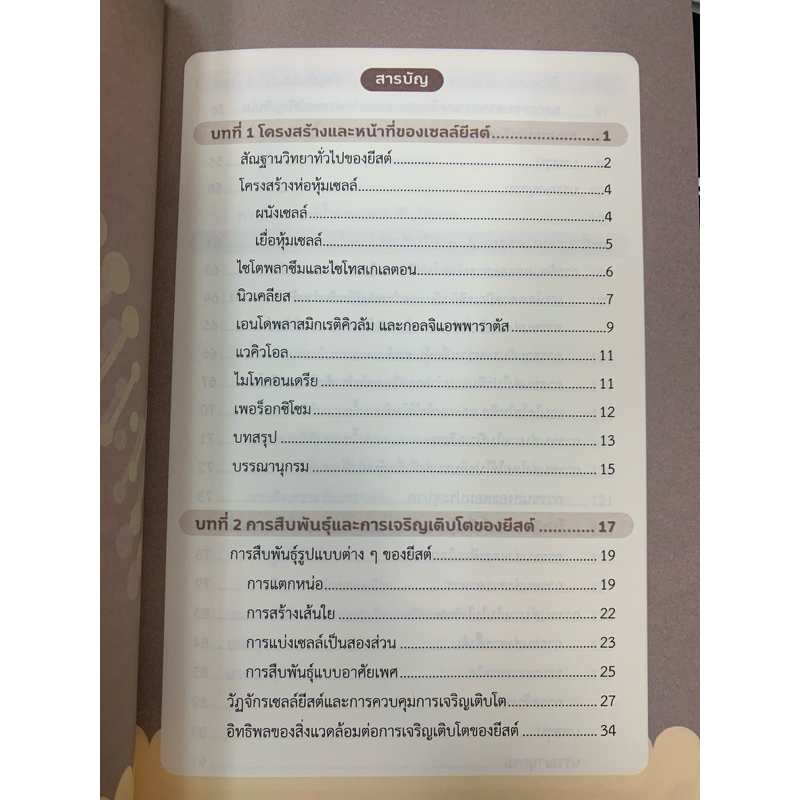 สารบัญ
บทที่ 1 โครงสร้างและหน้าที่ของเซลล์ยีสต์........................ 1
สัณฐานวิทยาทั่วไปของยีสต์..................................................2
โครงสร้างห่อหุ้มเซลล์..........................................................4
ผนังเซลล์......................................................................4
เยื่อหุ้มเซลล์...................................................................5
ไซโตพลาซึมและไซโทสเกเลตอน..........................................6
นิวเคลียส...........................................................................7
เอนโดพลาสมิกเรติคิวลัม และกอลจิแอพพาราตัส.....................9
แวคิวโอล.......................................................................... 11
ไมโทคอนเดรีย................................................................... 11
เพอร็อกซิโซม.................................................................... 12
บทสรุป ............................................................................ 13
บรรณานุกรม .................................................................... 15
บทที่ 2 การสืบพันธุ์และการเจริญเติบโตของยีสต์ ............ 17
การสืบพันธุ์รูปแบบต่าง ๆ ของยีสต์....................................... 19
การแตกหน่อ................................................................. 19
การสร้างเส้นใย .............................................................. 22
การแบ่งเซลล์เป็นสองส่วน ............................................... 23
การสืบพันธุ์แบบอาศัยเพศ............................................... 25
วัฏจักรเซลล์ยีสต์และการควบคุมการเจริญเติบโต...................... 27
อิทธิพลของสิ่งแวดล้อมต่อการเจริญเติบโตของยีสต์ ................. 34